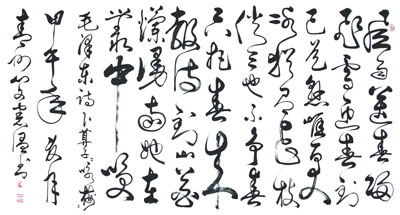 風雨送春歸
飛雪迎春到
已是懸崖百丈
冰犹有花枝
俏俏也不争春
只把春来
報待到山花
爛漫时她在
叢中笑
毛泽东詩卜算子咏梅
甲午年月
青州书